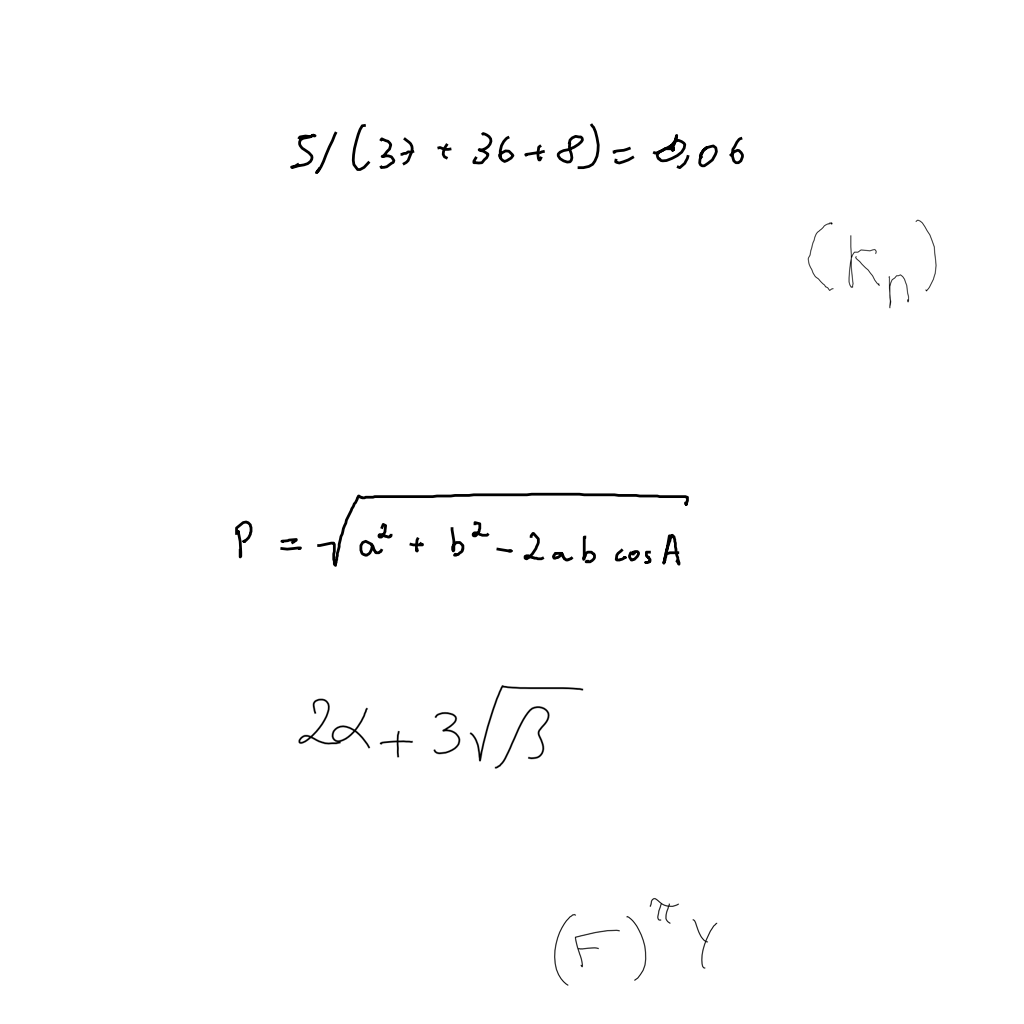 5/(37 + 36 + 8) = 0,06
(K_n)
P = √(a² + b² - 2ab cos A)
2α + 3√β
(F)^π Y